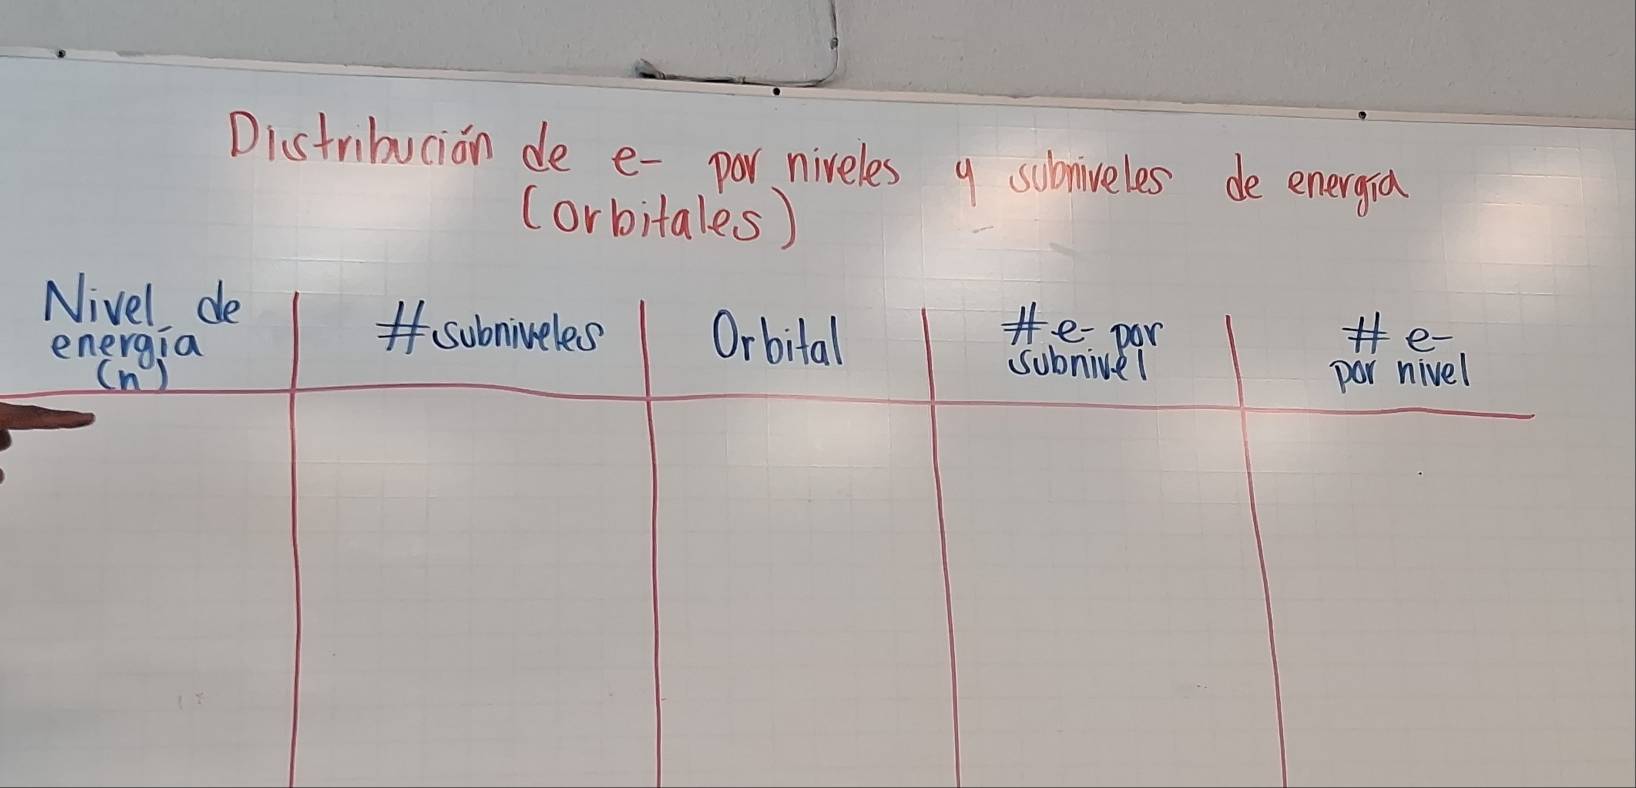 Distribución de e- por niveles y subniveles de energía
(orbitales)
Nivel de
energía
(n)
#subniveles
Orbital
# e- por
subnivel
# e-
por nivel